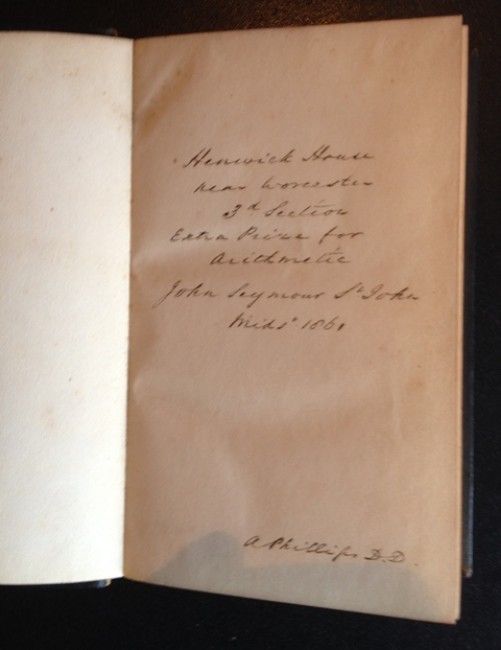 Henwick House
near Worcester
3d Section
Extra Prize for
Arithmetic
John Seymour St John
Mids 1861
A Phillips D.D.